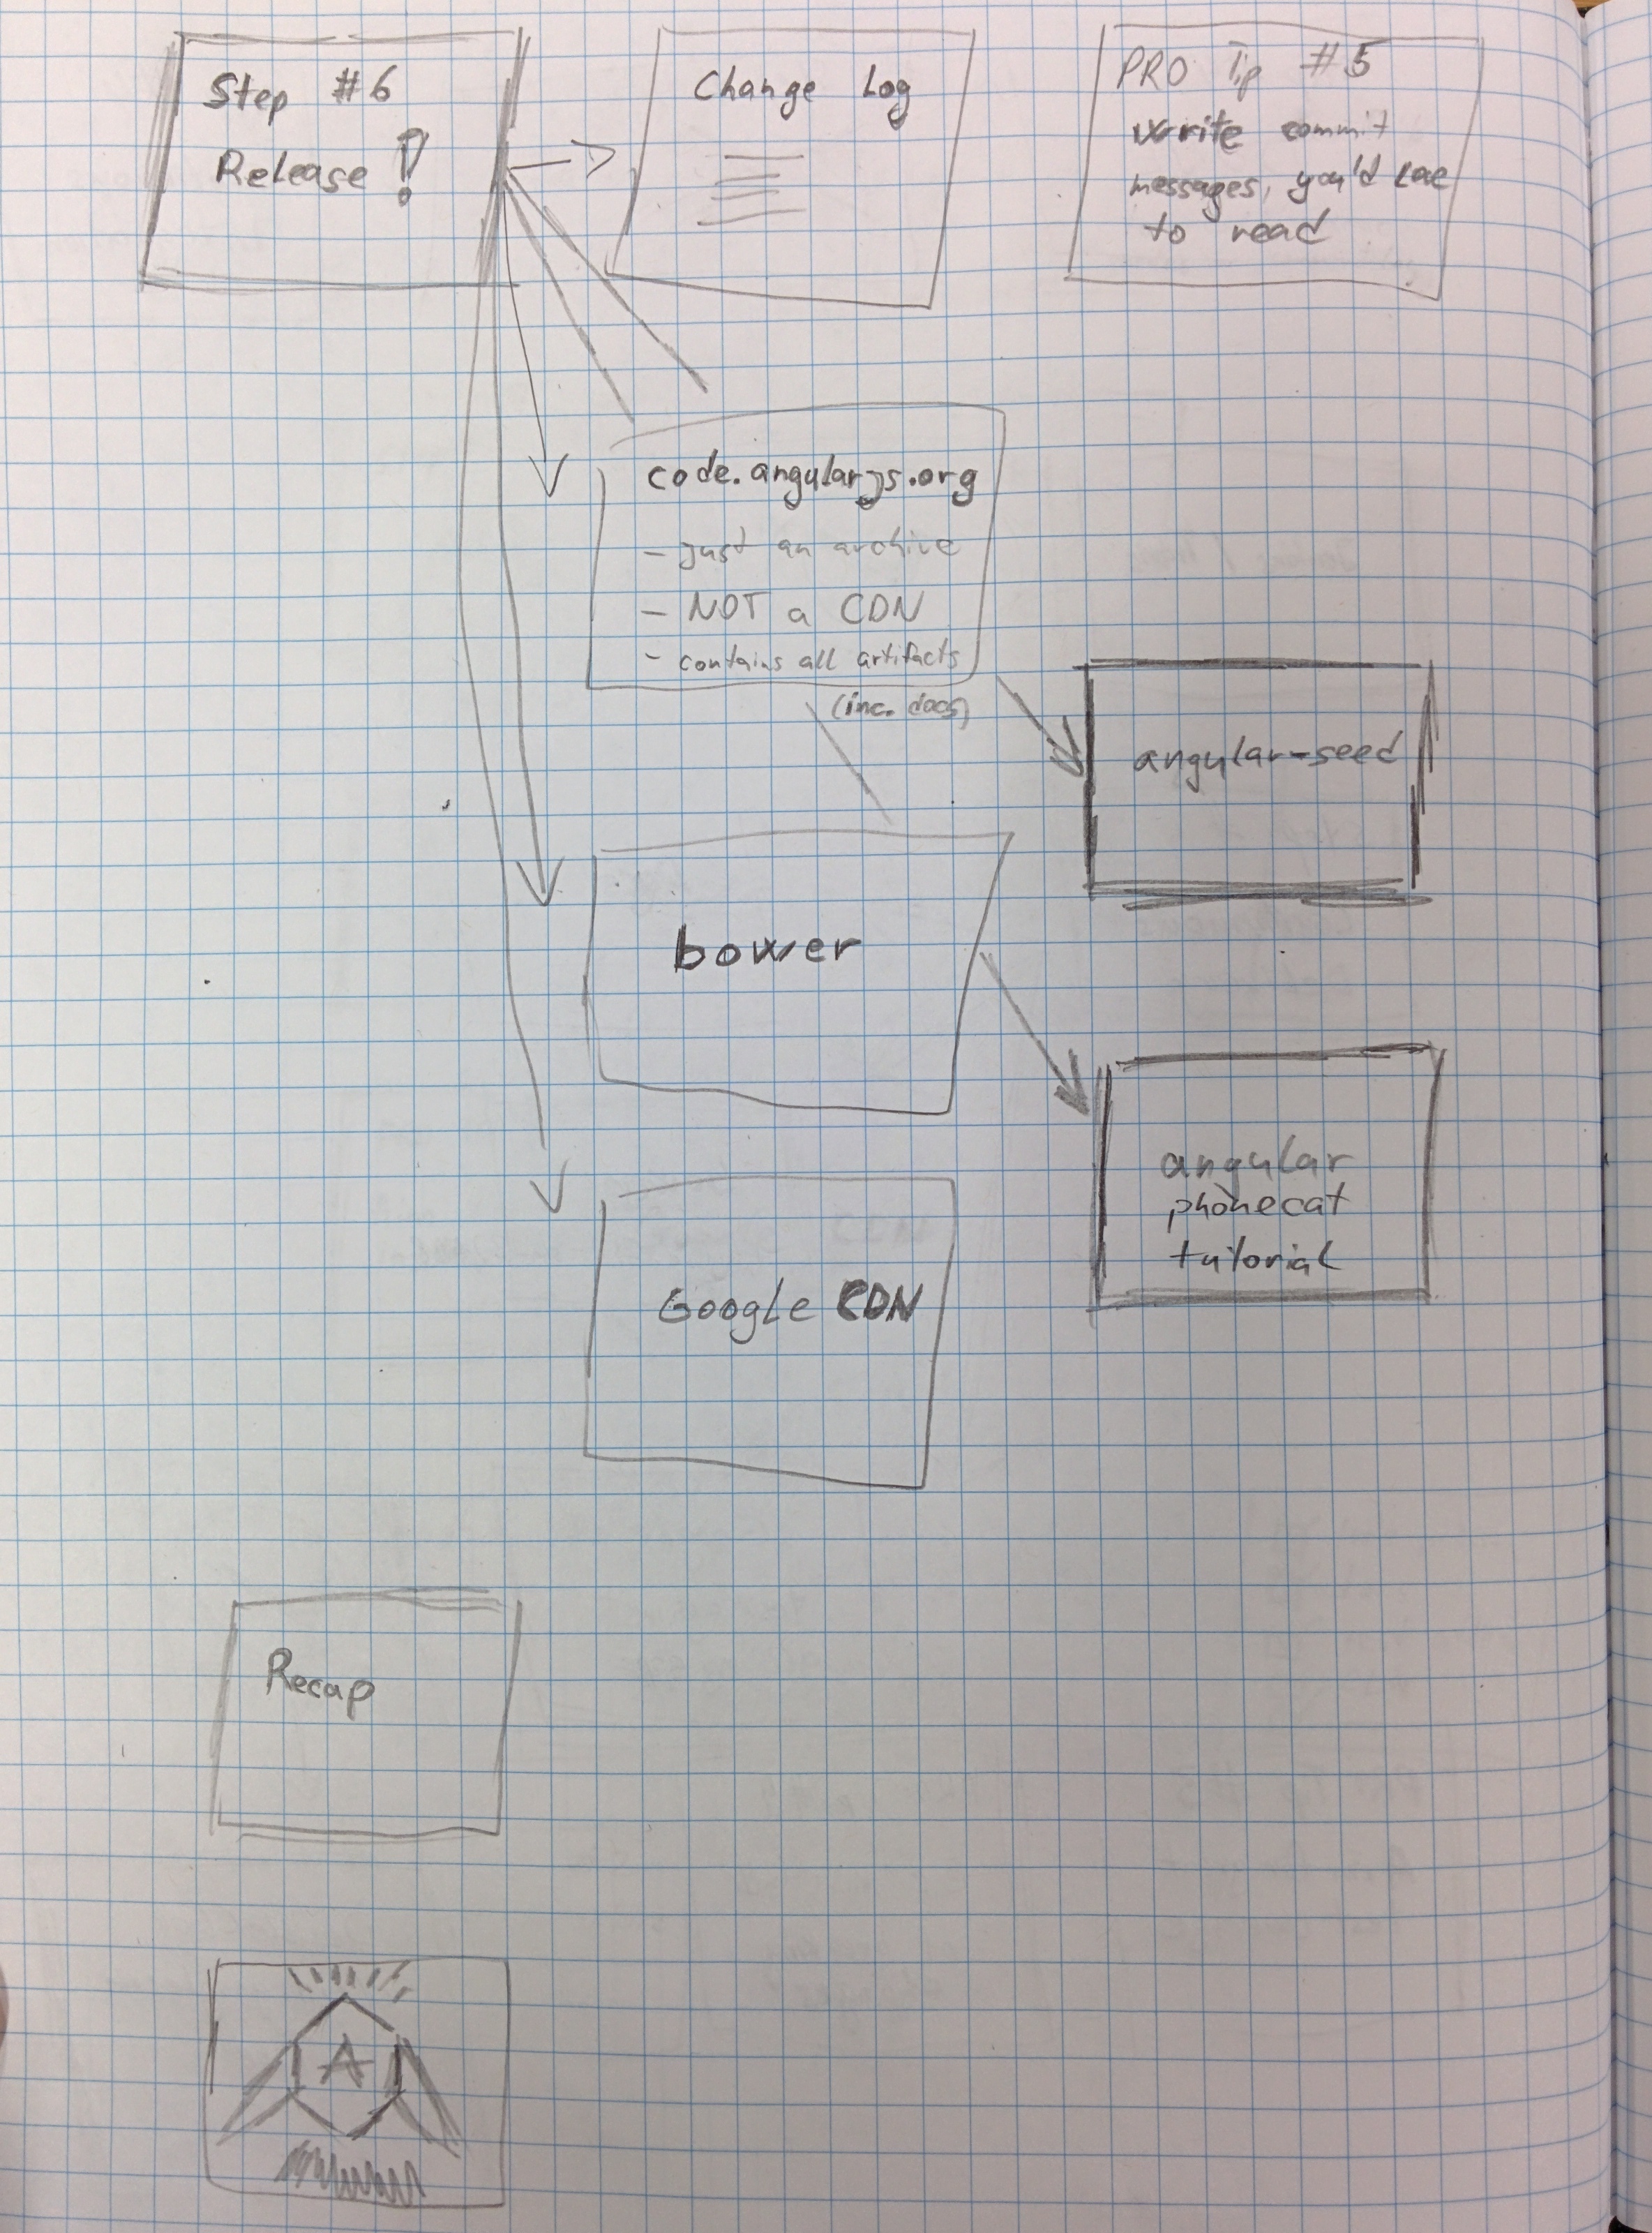 Step #6
Release!
Change Log
PRO Tip #5
write commit
messages, you'd
to read
code.angularjs.org
- just an archive
- NOT a CDN
- contains all artifacts
(inc. docs)
angular-seed
bower
angular
phonecat
tutorial
Google CDN
Recap
A